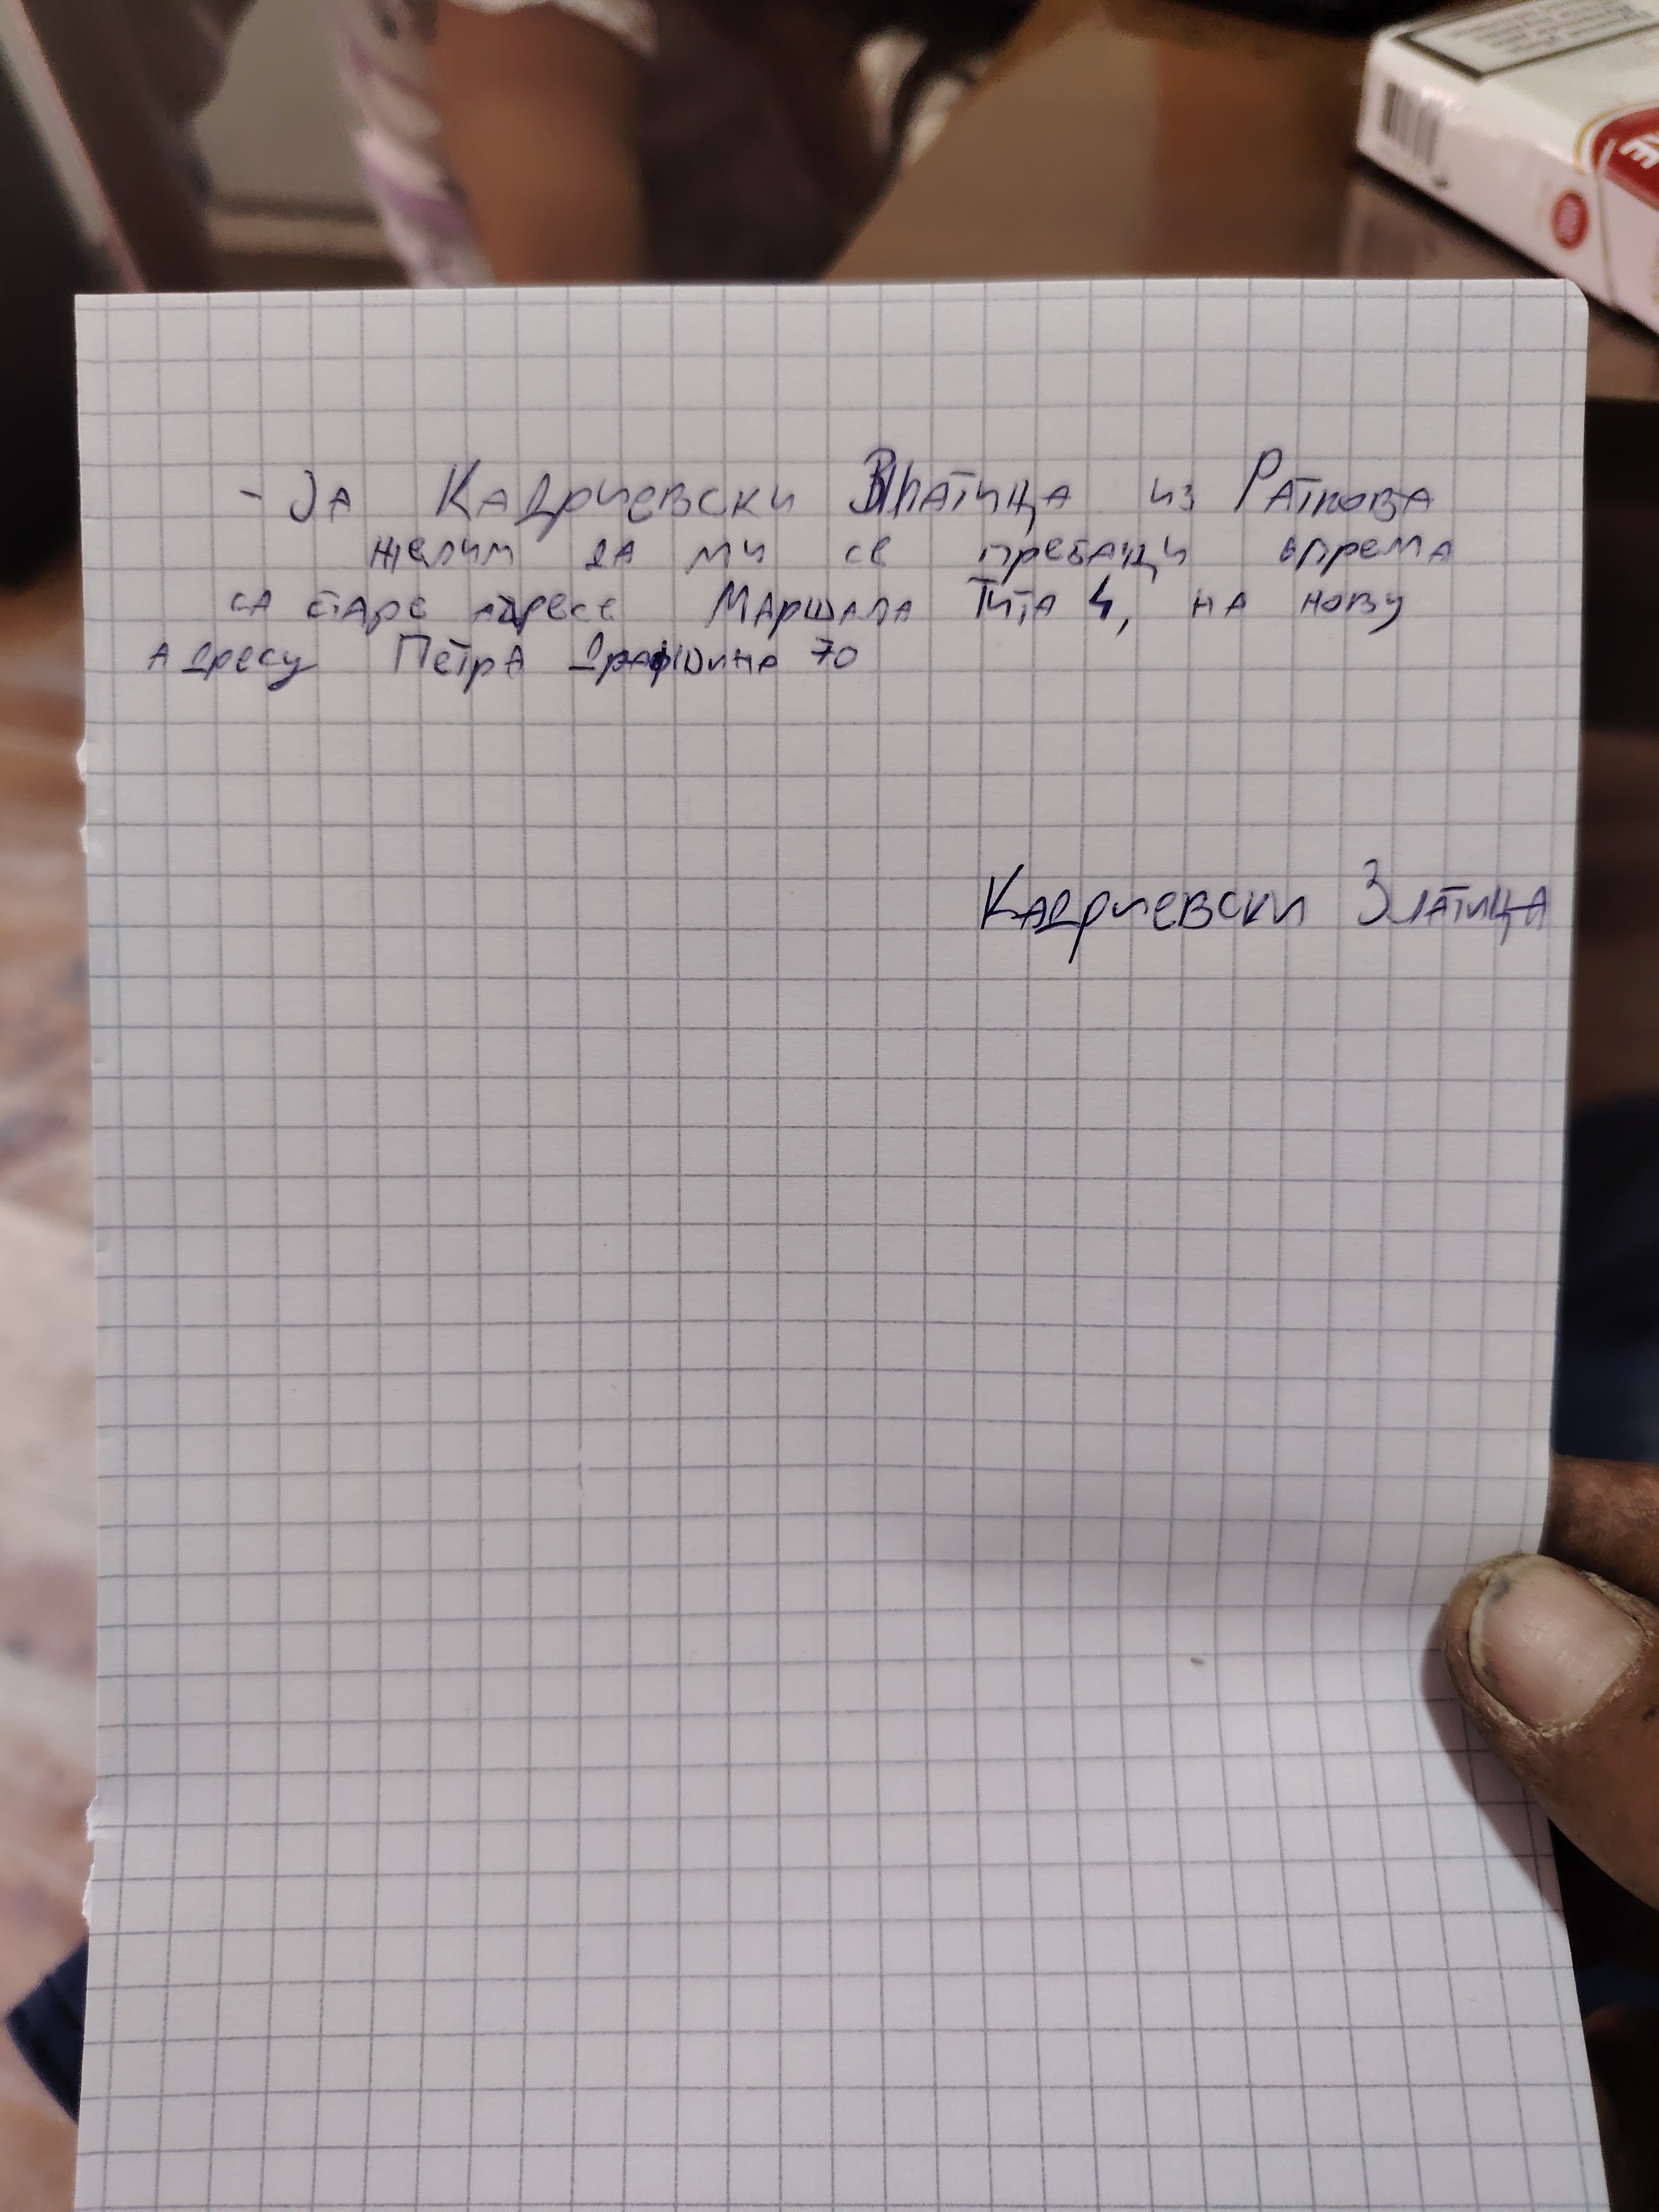 - Ја Кадриевски Златица из Раткова
желим да ми се пребаци опрема
са старе адресе Маршала Тита 4, на нову
адресу Петра Драпшина 70
Кадриевски Златица